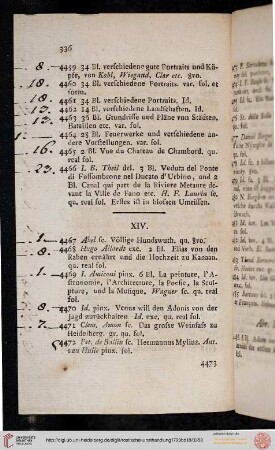 336
8. 4459 34 Bl. verschiedene gute Portraits und Kö-
pfe, von Kohl, Wiegand, Clar etc. 8vo.
18. 4460 34 Bl. verschiedene Portraits. var. fol. et
form.
18. 4461 34 Bl. verschiedene Portraits. Id.
13. 4462 34 Bl. verschiedene Landschaften. Id.
13. 4463 36 Bl. Grundrisse und Pläne von Städten,
Batailien etc. var. fol.
1. 4464 23 Bl. Feuerwerke und verschiedene an-
dere Vorstellungen. var. fol.
16. 4465 2 Bl. Vue du Chateau de Chambord. qu.
real fol.
23. 4466 I. B. Theil del. 3 Bl. Veduta del Ponte
di Fossombrone nel Ducato d'Urbino, und 2
Bl. Canal qui part de la riviere Metaure de-
vant la Ville de Fano etc. H. P. Lauvin sc.
qu. real fol. Erstes ist in blosen Umrissen.
XIV.
1. 4467 Abel sc. Völlige Hundswuth. qu. 8vo.
4468 Hugo Allardt exc. 2 Bl. Elias von den
Raben ernährt und die Hochzeit zu Kanaan.
qu. real fol.
1. 4469 I. Amiconi pinx. 6 Bl. La peinture, l'A-
stronomie, l'Architecture, la Poesie, la Sculp-
ture, und la Musique, Wagner sc. qu. real
fol.
8. 4470 Id. pinx. Venus will den Adonis von der
Jagd zurückhalten. Id. exc. qu. real fol.
7. 4471 Casp. Anton sc. Das grosse Weinfass zu
Heidelberg. gr. qu. fol.
4472 Pet. de Ballin sc. Hermannus Mylius. Aut.
van Hulle pinx. fol.
4473